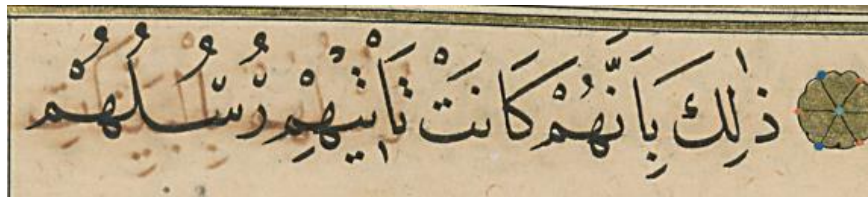 ذٰلِكَ بِاَنَّهُمْ كَانَتْ تَاْت۪يهِمْ رُسُلُهُمْ